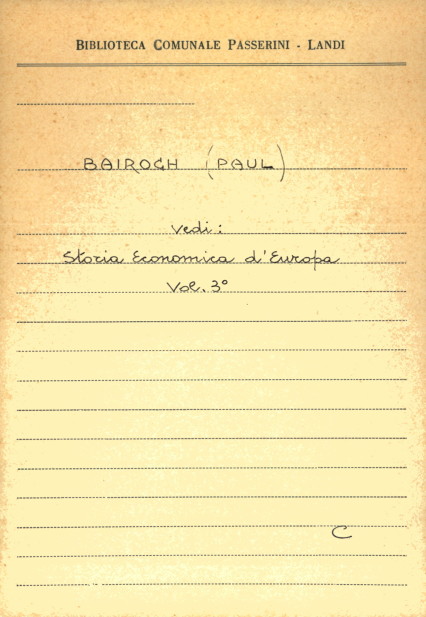 BIBLIOTECA COMUNALE PASSERINI - LANDI
BAIROCH (PAUL)
Vedi:
Storia Economica d'Europa
Vol. 3°
C